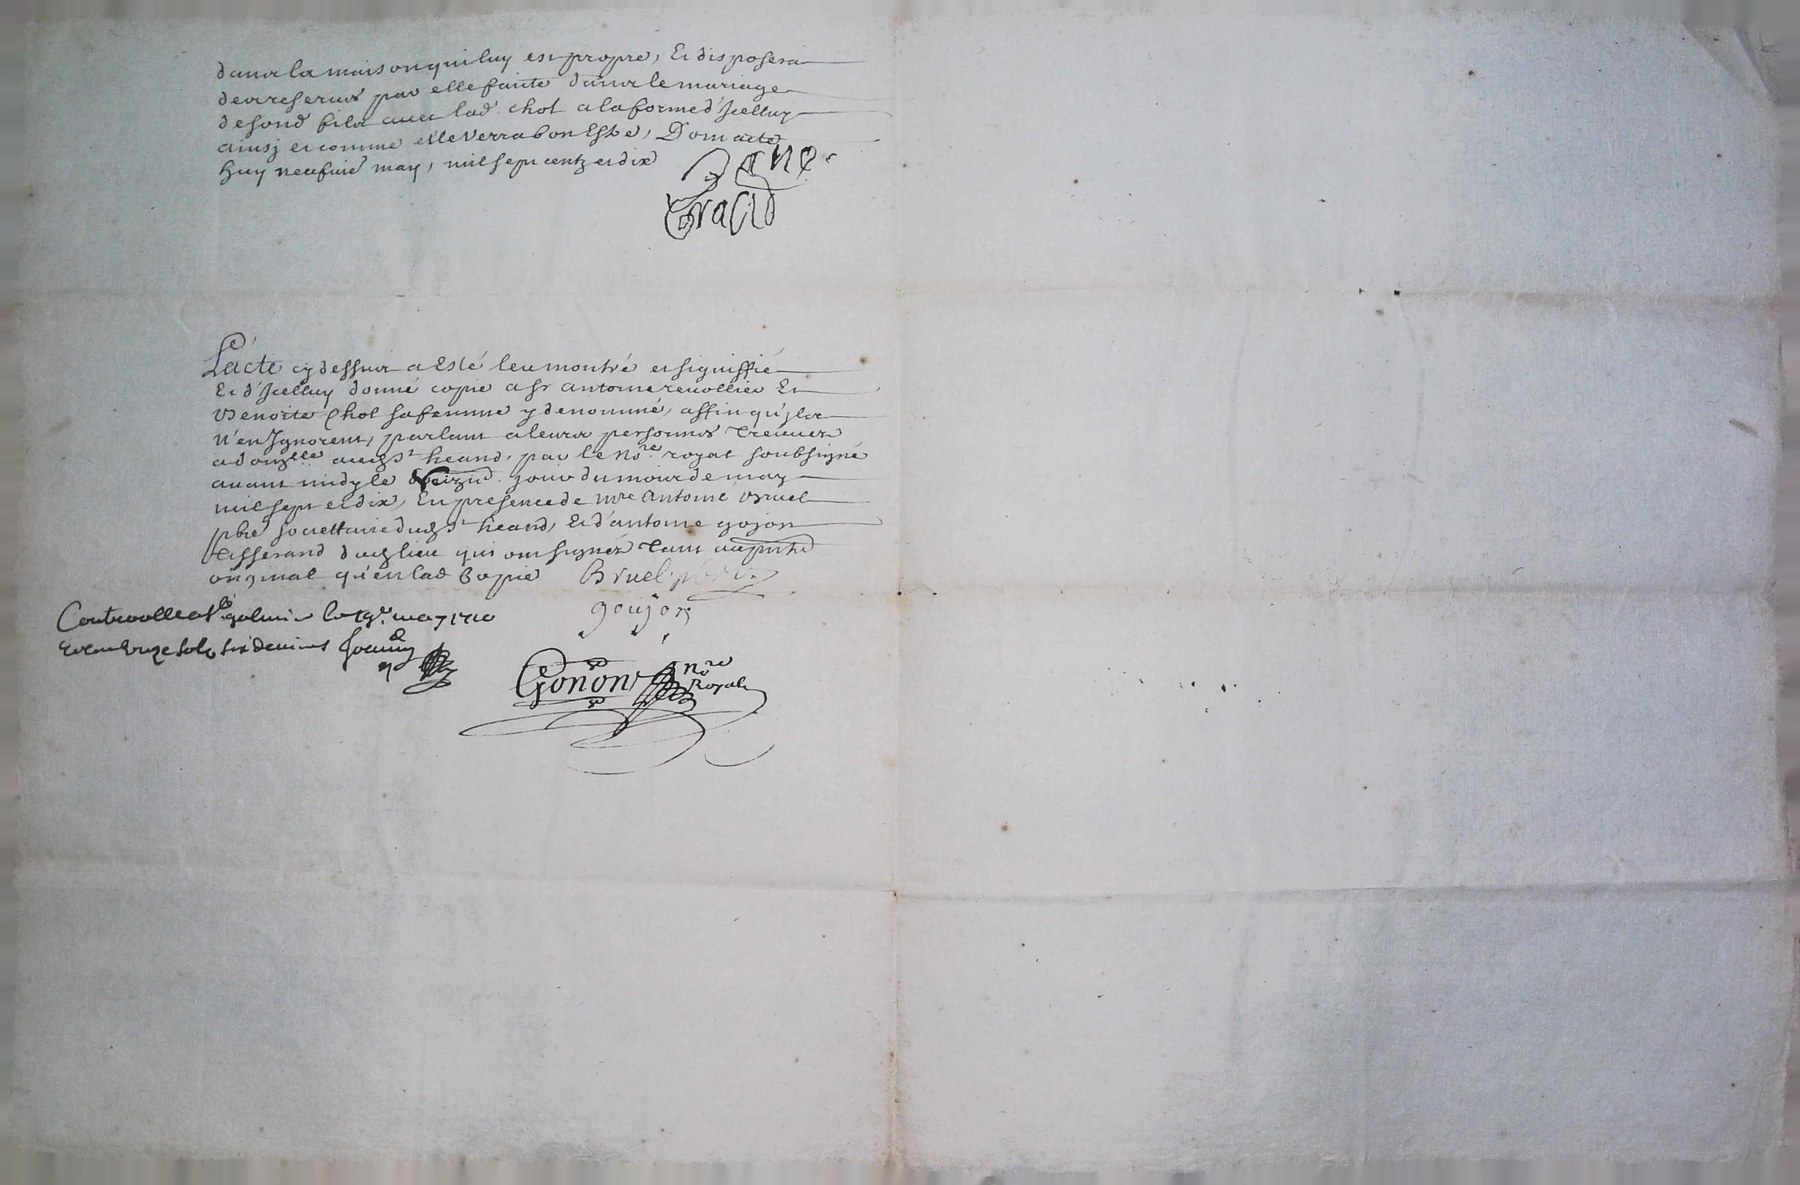 dans la maison qui luy est propre, Et disposera
des reserves par elle faite dans le mariage
de sond filz avec lad. chol a la forme d'Jcelluy
ainsj et comme elle verra bon Estre, Dont acte
huy neufvie may, mil sept centz et dix
L'acte cy dessus a esté leu montré et signiffié
Et d'Jcelluy donné copie a sr antoine revollier Et
Benoite Chol sa femme y denommé, affin qu'jlz
n'en Jgnorent, parlant a leurs personnes treuvez
and. par le nore royal soubsigné
avant midy le jour du mois de may
mil sept et dix, En presence de mre Antoine Bruel
pbre societtaire dud st heand, Et d'antoine gojon
tisserand dud lieu qui ont signez tant au pnt
original qu'en lad Copie Bruel pbre
goujon
Controlle a st galmier le 19e. may 1710
six deniers
Gonon nore
Royal